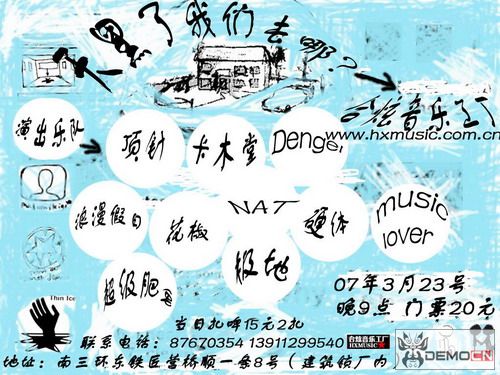 黑了我们去哪?
合炫音乐工厂
www.hxmusic.com.cn
演出乐队
顶针
卡木堂
Denger
浪漫假日
花椒
NAT
通体
music
lover
超级肥
极地
07年3月23号
晚9点 门票20元
Thin Ice
当日扎啤15元2扎
联系电话: 87670354 13911299540
合炫音乐工厂
HXMUSIC
DEMOCN
地址: 南三环东铁匠营桥顺一条8号(建筑锁厂内